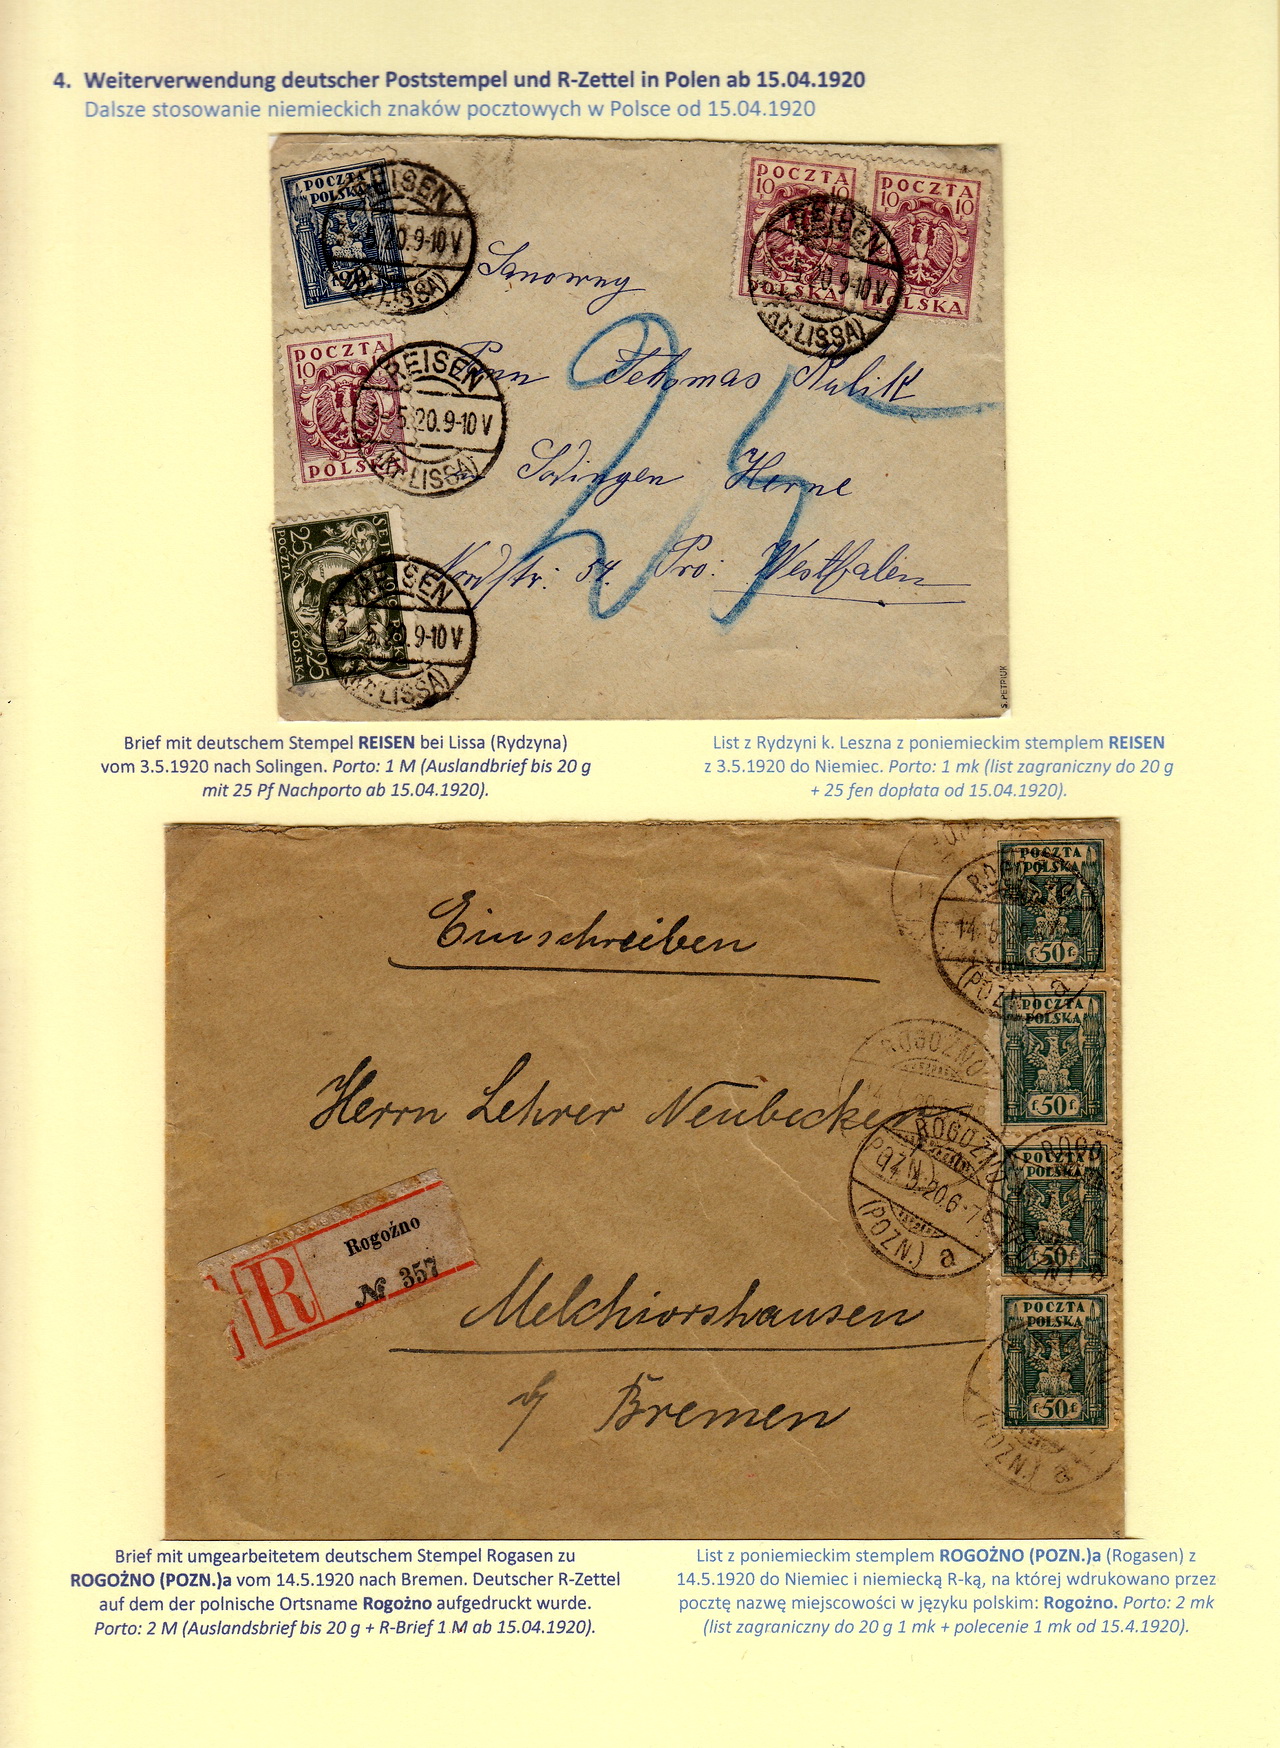 4. Weiterverwendung deutscher Poststempel und R-Zettel in Polen ab 15.04.1920
Dalsze stosowanie niemieckich znaków pocztowych w Polsce od 15.04.1920
POCZTA
POLSKA
REISEN
20.9-10 V
LISSA)
POCZTA
10 10
POLSKA
POCZTA
10 10
POLSKA
REISEN
20.9-10 V
(Kr. LISSA)
Sanowny
Pann Tehomas Kulik
POCZTA
10
POLSKA
REISEN
3-5.20.9-10 V
(Kr. LISSA)
25
Sodingen Herne
Nordstr: 54. Pro: Westfalen
25
POCZTA
POLSKA
25
REISEN
3-5.20.9-10 V
(Kr. LISSA)
S. PETRIUK
Brief mit deutschem Stempel REISEN bei Lissa (Rydzyna)
vom 3.5.1920 nach Solingen. Porto: 1 M (Auslandbrief bis 20 g
mit 25 Pf Nachporto ab 15.04.1920).
List z Rydzyni k. Leszna z poniemieckim stemplem REISEN
z 3.5.1920 do Niemiec. Porto: 1 mk (list zagraniczny do 20 g
+ 25 fen dopłata od 15.04.1920).
POCZTA
POLSKA
f50f
(POZN.) a
Einschreiben
POCZTA
POLSKA
f50f
ROGOŹNO
Herrn Lehrer Neubecker
ROGOŹNO
14.5.20.6-7
(POZN.) a
POCZTA
POLSKA
f50f
R
Rogoźno
№ 357
Melchiorshausen
POCZTA
POLSKA
f50f
(POZN.) a
b/ Bremen
Brief mit umgearbeitetem deutschem Stempel Rogasen zu
ROGOŻNO (POZN.)a vom 14.5.1920 nach Bremen. Deutscher R-Zettel
auf dem der polnische Ortsname Rogożno aufgedruckt wurde.
Porto: 2 M (Auslandsbrief bis 20 g + R-Brief 1 M ab 15.04.1920).
List z poniemieckim stemplem ROGOŻNO (POZN.)a (Rogasen) z
14.5.1920 do Niemiec i niemiecką R-ką, na której wdrukowano przez
pocztę nazwę miejscowości w języku polskim: Rogożno. Porto: 2 mk
(list zagraniczny do 20 g 1 mk + polecenie 1 mk od 15.4.1920).